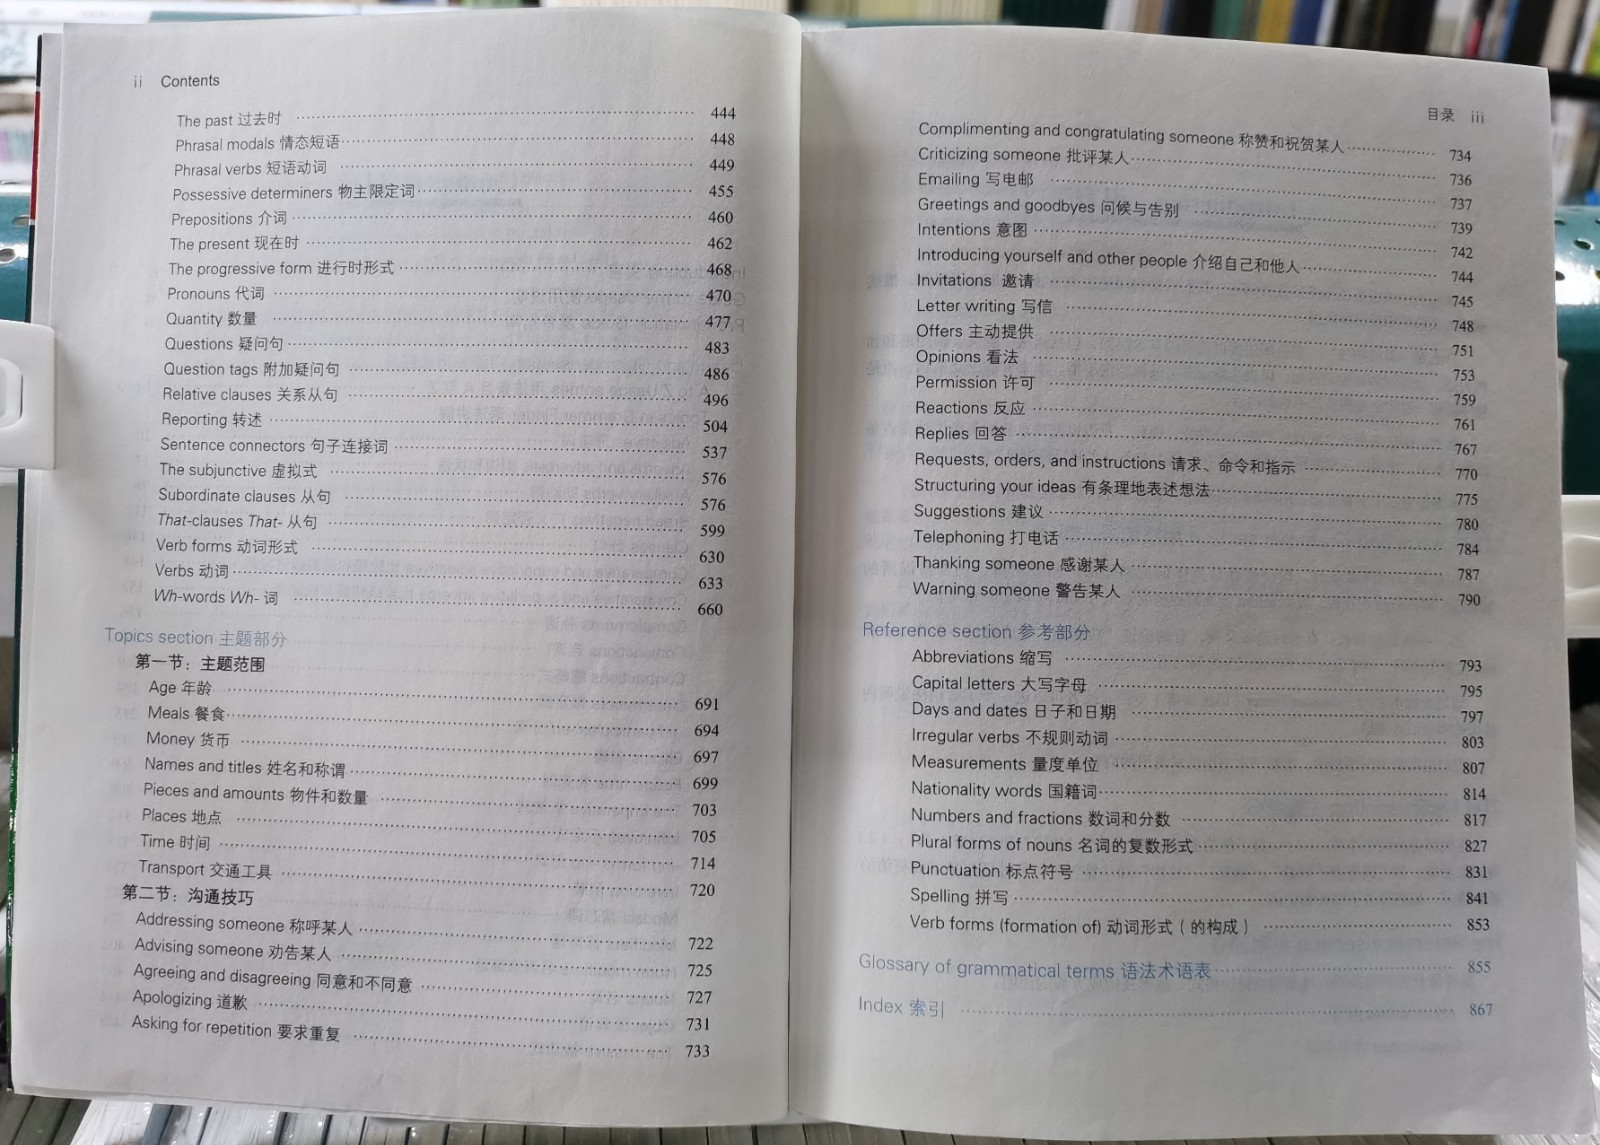 ii Contents
The past 过去时 444
Phrasal modals 情态短语 448
Phrasal verbs 短语动词 449
Possessive determiners 物主限定词 455
Prepositions 介词 460
The present 现在时 462
The progressive form 进行时形式 468
Pronouns 代词 470
Quantity 数量 477
Questions 疑问句 483
Question tags 附加疑问句 486
Relative clauses 关系从句 496
Reporting 转述 504
Sentence connectors 句子连接词 537
The subjunctive 虚拟式 576
Subordinate clauses 从句 576
That-clauses That- 从句 599
Verb forms 动词形式 630
Verbs 动词 633
Wh-words Wh- 词 660
Topics section 主题部分
第一节：主题范围
Age 年龄 691
Meals 餐食 694
Money 货币 697
Names and titles 姓名和称谓 699
Pieces and amounts 物件和数量 703
Places 地点 705
Time 时间 714
Transport 交通工具 720
第二节：沟通技巧
Addressing someone 称呼某人 722
Advising someone 劝告某人 725
Agreeing and disagreeing 同意和不同意 727
Apologizing 道歉 731
Asking for repetition 要求重复 733
目录 iii
Complimenting and congratulating someone 称赞和祝贺某人 734
Criticizing someone 批评某人 736
Emailing 写电邮 737
Greetings and goodbyes 问候与告别 739
Intentions 意图 742
Introducing yourself and other people 介绍自己和他人 744
Invitations 邀请 745
Letter writing 写信 748
Offers 主动提供 751
Opinions 看法 753
Permission 许可 759
Reactions 反应 761
Replies 回答 767
Requests, orders, and instructions 请求、命令和指示 770
Structuring your ideas 有条理地表述想法 775
Suggestions 建议 780
Telephoning 打电话 784
Thanking someone 感谢某人 787
Warning someone 警告某人 790
Reference section 参考部分
Abbreviations 缩写 793
Capital letters 大写字母 795
Days and dates 日子和日期 797
Irregular verbs 不规则动词 803
Measurements 量度单位 807
Nationality words 国籍词 814
Numbers and fractions 数词和分数 817
Plural forms of nouns 名词的复数形式 827
Punctuation 标点符号 831
Spelling 拼写 841
Verb forms (formation of) 动词形式（的构成） 853
Glossary of grammatical terms 语法术语表 855
Index 索引 867